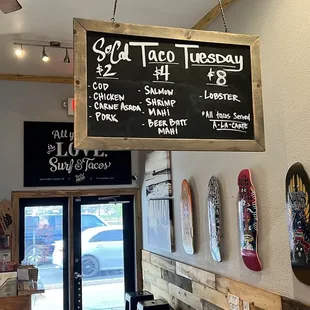 SoCal Taco Tuesday
$2 $4 $8
- COD
- CHICKEN
- CARNE ASADA
- PORK
- SALMON
- SHRIMP
- MAHI
- BEER BATT MAHI
- LOBSTER
*All tacos served
A-LA-CARTE
All you
LOVE,
Surf & Tacos